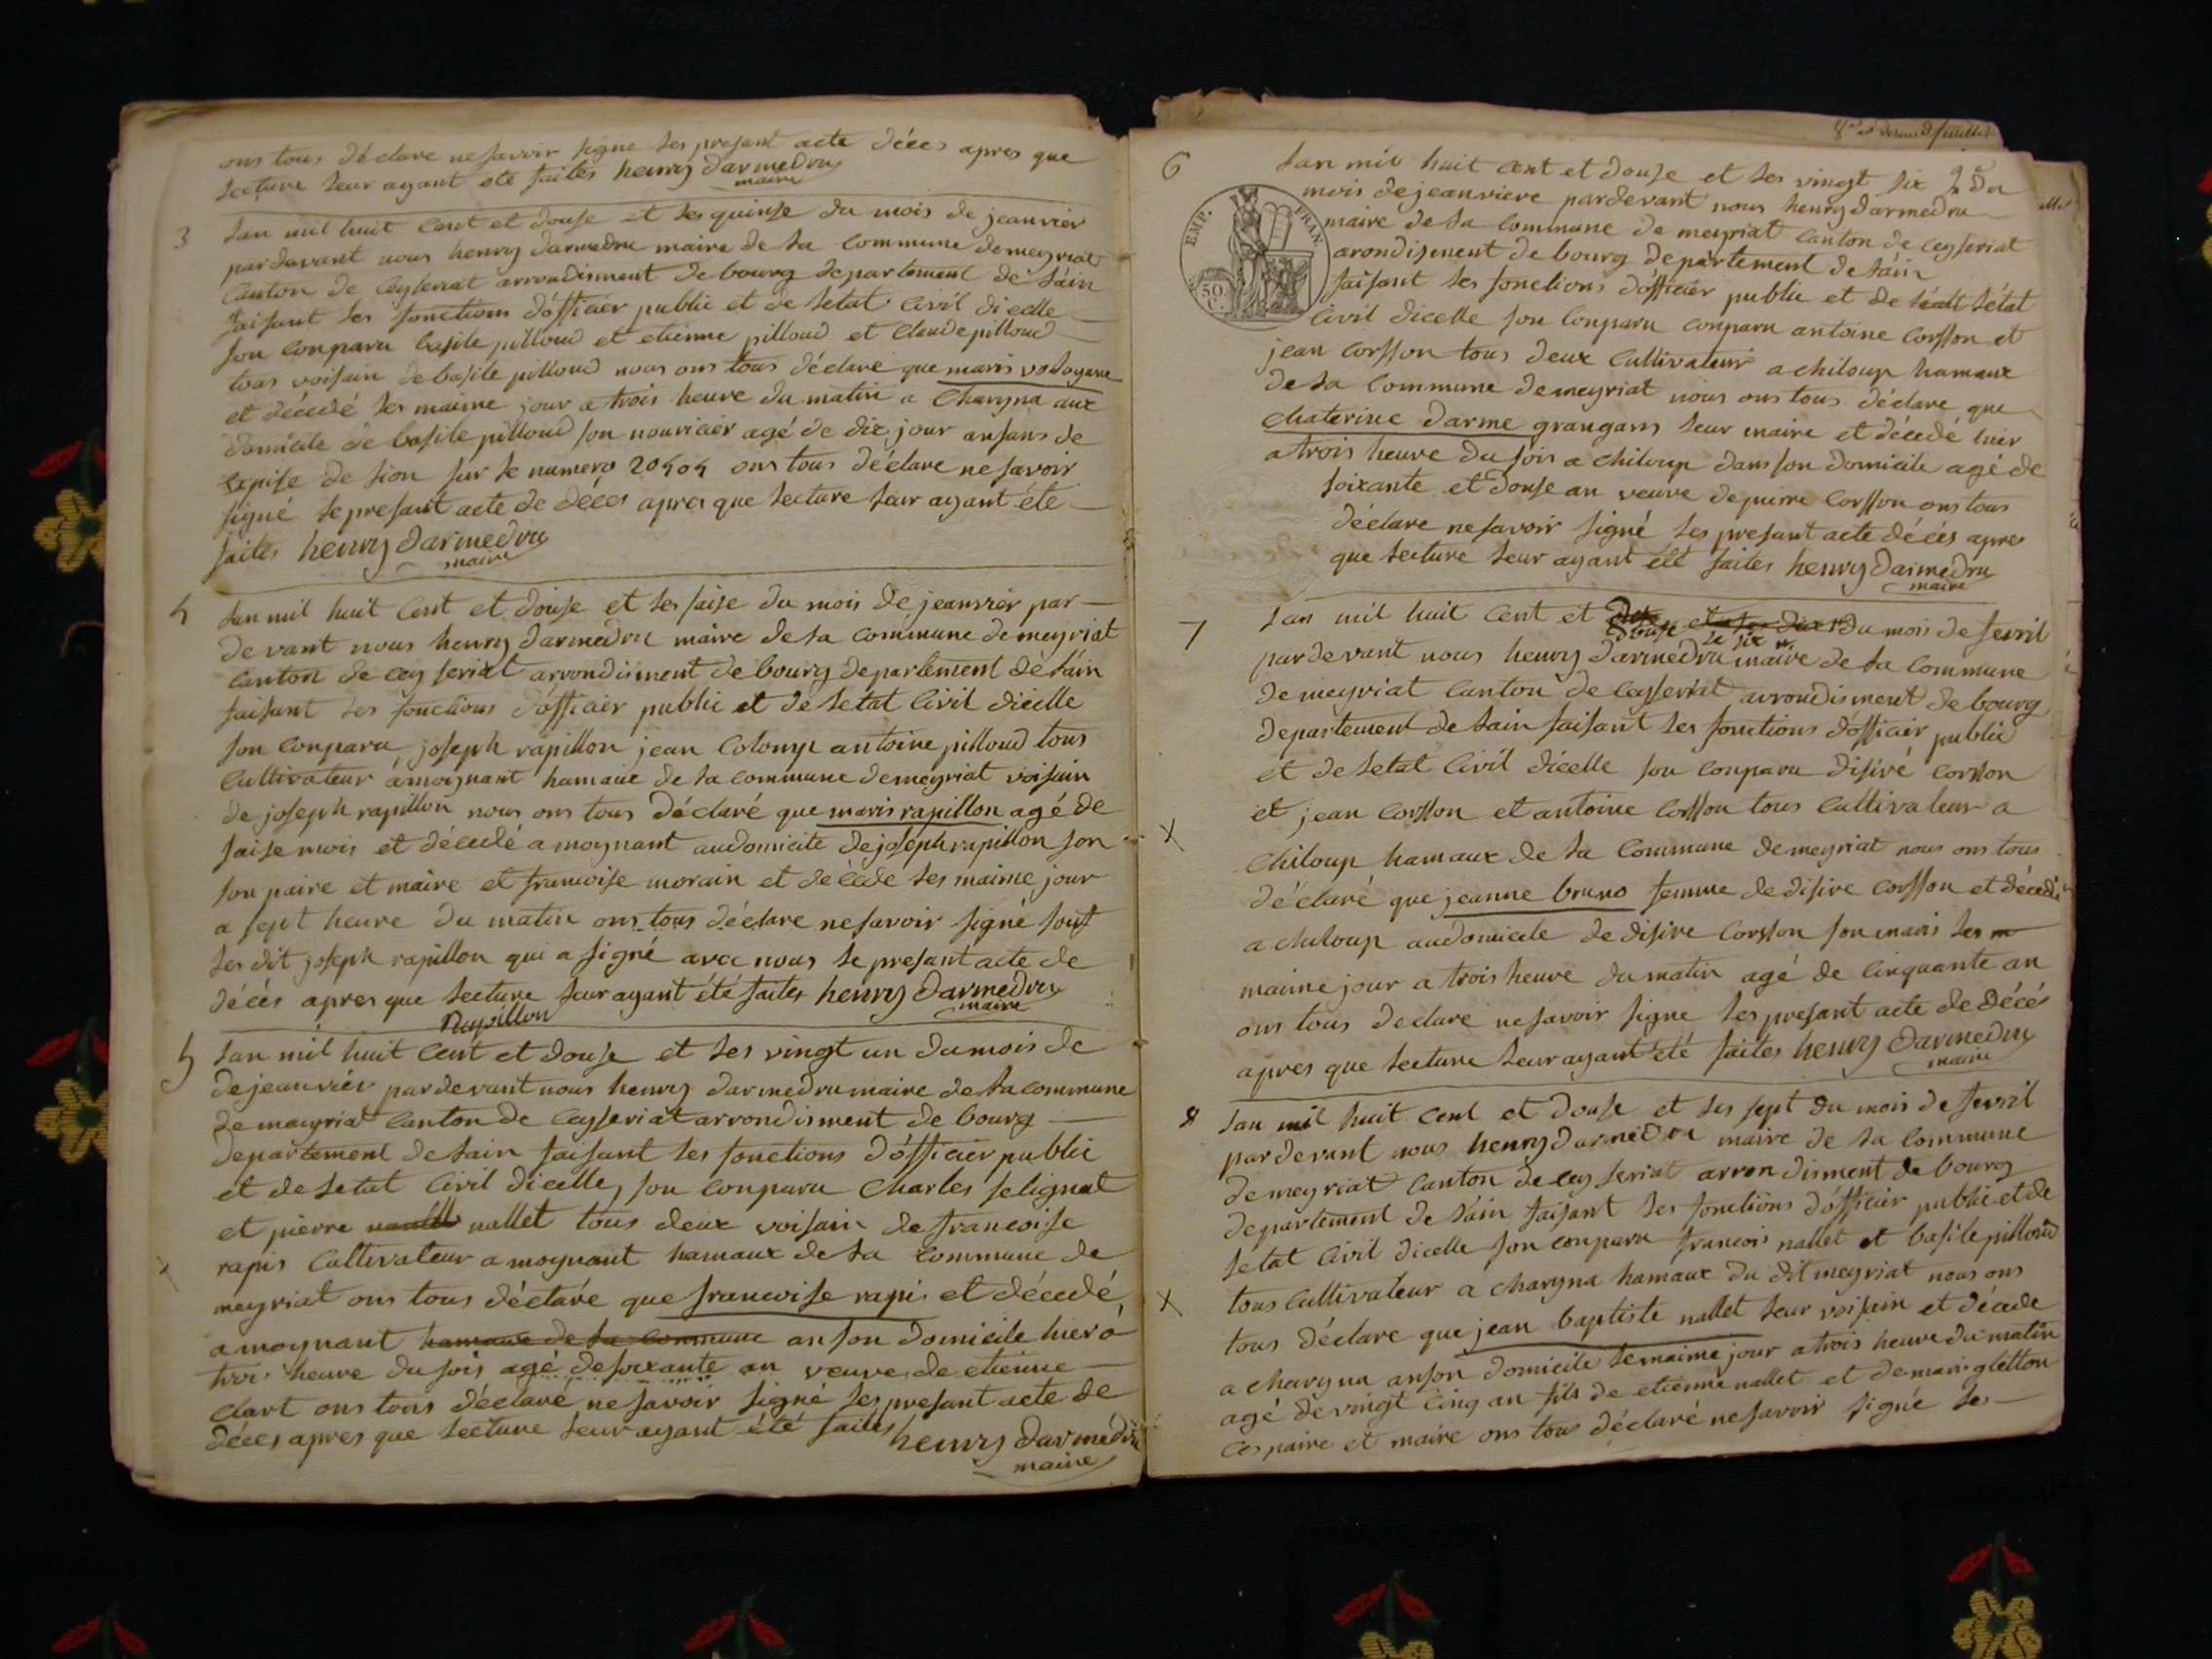 ons tous déclare ne savoir signe les presant acte décés apres que
lecture leur ayant ete faites henry darmedru
maire
3
Lan mil huit Cent et douse et les quinse du mois de jeanvier
pardavant nous henry darmedru maire de la Commune demeyriat
Canton de Ceyseriat arrondisment de bourg departement de l'ain
faisant les fonctions d'officier public et de letat Civil dicelle
son Conparu basile pilloud et etienne pilloud et Claude pilloud
tous voisain de basile pilloud nous ons tous déclaré que maris
et décedé les maime jour a trois heure du matin a Charyna aux
domicile de basile pilloud son nouricier agé de dix jour ansans de
de lion sur le numero 20404 ons tous déclare ne savoir
signé le presant acte de décés apres que lecture leur ayant été
faites henry darmedru
maire
4
Lan mil huit Cent et douse et les saise du mois de jeanvier par
devant nous henry darmedru maire de la Commune demeyriat
Canton de ceyseriat arrondisment de bourg departement de láin
faisant les fonctions d'officier public et de letat Civil dicelle
son Conparu joseph rapillon jean Colomp antoine pilloud tous
Cultivateur a moynant hamaux de la Commune demeyriat voisain
de joseph rapillon nous ons tous déclaré que maris rapillon agé de
saise mois et décedé a moynant audomicile de joseph rapillon son
son paire et maire et francoise morain et décédé les maime jour
a sept heure du matin ons tous déclare ne savoir signé souf
les dit joseph rapillon qui a signé avec nous le presant acte de
décés apres que lecture leur ayant été faites henry darmedru
maire
Rapillon
5
Lan mil huit Cent et douse et les vingt un du mois de
de jeanvier pardevant nous henry darmedru maire de la commune
de mayriat Canton de Ceyseriat arrondisment de bourg
departement de lain faisant les fonctions d'officier public
et de letat Civil dicelle, son conparu Charles selignat
et pierre nallet tous deux voisain de francoise
rapis Cultivateur a moynant hamaux de la Commune de
meyriat ons tous déclaré que francoise rapis et décedé
a moynant hamaux de la Commune anson domicile hier a
trois heure du sois agé de soixante an veuve de etienne
Clart ons tous déclaré ne savoir signé les presant acte de
décés apres que lecture leur ayant été faites henry darmedru
maire
8me et dernier feuillet
6
Lan mil huit Cent et douse et les vingt six du
mois de jeanviere pardevant nous henry darmedru
maire de la Commune de meyriat Canton de Ceyseriat
arondisment de bourg departement de láin
faisant les fonctions d'officier public et de létat
Civil dicelle son Conparu conparu antoine Corsson et
jean Corsson tous deux Cultivateur a chiloup hamaux
de la Commune demeyriat nous ons tous déclare que
Chaterine darme grangars leur maire et décedé hier
a trois heure du sois a chiloup dans son domicile agé de
soixante et douse an veuve de pierre Corsson ons tous
déclare ne savoir signé les presant acte décés apres
que lecture leur ayant été faites henry darmedru
maire
EMP. FRAN.
50
C.
7
Lan mil huit Cent et du mois de fevril
douse le six
pardevant nous henry darmedru maire de la Commune
de meyriat Canton de Ceyseriat arrondisment de bourg
departement de lain faisant les fonctions d'officier public
et de letat Civil dicelle son Conparu disiré Corsson
et jean Corsson et antoine Corsson tous Cultivateur a
Chiloup hamaux de la Commune demeyriat nous ons tous
déclaré que jeanne bruno femme de disire Corsson et décedé
a chiloup audomicile de disire Corsson son maris les m
maime jour a trois heure du matin agé de Cinquante an
ons tous declare ne savoir signe les presant acte de décé
apres que lecture leur ayant été faites henry darmedru
maire
8
Lan mil huit Cent et douse et les sept du mois de fevril
pardevant nous henry darmedru maire de la Commune
demeyriat Canton de Ceyseriat arrondisment de bourg
departement de láin faisant les fonctions d'officier public et de
letat Civil dicelle son conparu francois nallet et basile pilloud
tous Cultivateur a Charyna hamaux du dit meyriat nous ons
tous déclare que jean baptiste nallet leur voisain et décede
a Charyna anson domicile lemaime jour a trois heure du matin
agé de vingt cinq an fils de etienne nallet et de maris gletton
Ces paire et maire ons tous déclaré ne savoir signé les